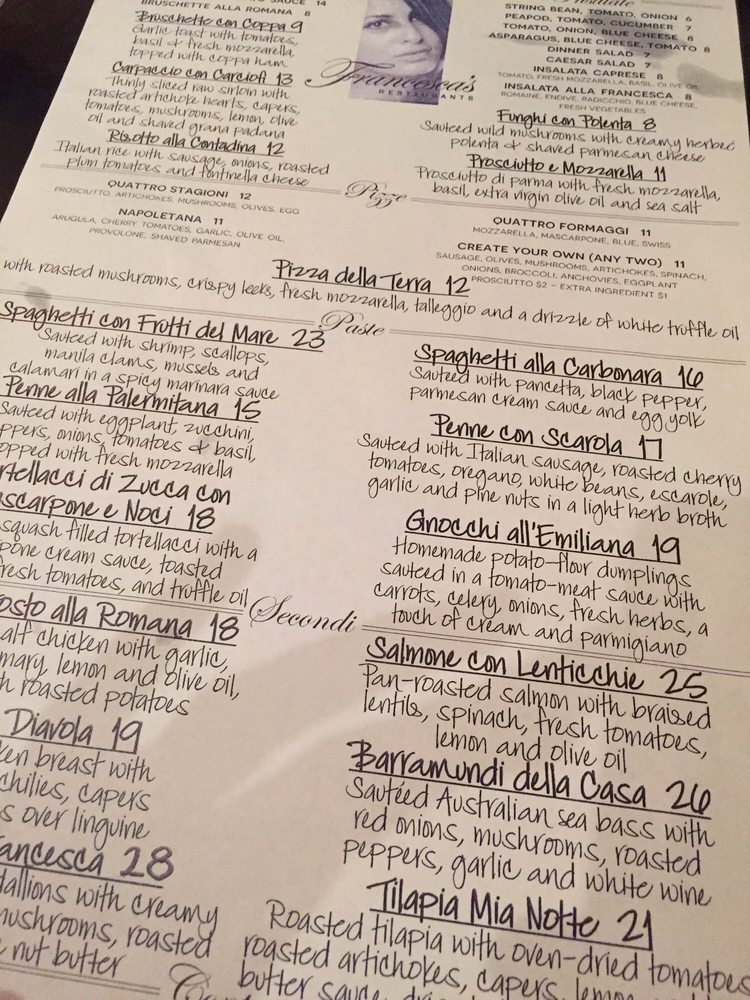 SAUCE 14
BRUSCHETTE ALLA ROMANA 8
Bruschette con Coppa 9
Garlic toast with tomatoes,
basil & fresh mozzarella,
topped with coppa ham
Carpaccio con Carciofi 13
Thinly sliced raw sirloin with
roasted artichoke hearts, capers,
tomatoes, mushrooms, lemon, olive
oil and shaved grana padana
Risotto alla Contadina 12
Italian rice with sausage, onions, roasted
plum tomatoes and fontinella cheese
Francesca's
RESTAURANTS
STRING BEAN, TOMATO, ONION 6
PEAPOD, TOMATO, CUCUMBER 7
TOMATO, ONION, BLUE CHEESE 7
ASPARAGUS, BLUE CHEESE, TOMATO 8
DINNER SALAD 7
CAESAR SALAD 7
INSALATA CAPRESE 8
TOMATO, FRESH MOZZARELLA, BASIL, OLIVE OIL
INSALATA ALLA FRANCESCA 8
ROMAINE, ENDIVE, RADICCHIO, BLUE CHEESE,
FRESH VEGETABLES
Funghi con Polenta 8
Sauteed wild mushrooms with creamy herbed
polenta & shaved parmesan cheese
Prosciutto e Mozzarella 11
Prosciutto di parma with fresh mozzarella,
basil, extra virgin olive oil and sea salt
Pizze
QUATTRO STAGIONI 12
PROSCIUTTO, ARTICHOKES, MUSHROOMS, OLIVES, EGG
NAPOLETANA 11
ARUGULA, CHERRY TOMATOES, GARLIC, OLIVE OIL,
PROVOLONE, SHAVED PARMESAN
QUATTRO FORMAGGI 11
MOZZARELLA, MASCARPONE, BLUE, SWISS
CREATE YOUR OWN (ANY TWO) 11
SAUSAGE, OLIVES, MUSHROOMS, ARTICHOKES, SPINACH,
ONIONS, BROCCOLI, ANCHOVIES, EGGPLANT
PROSCIUTTO $2 - EXTRA INGREDIENT $1
Pizza della Terra 12
with roasted mushrooms, crispy leeks, fresh mozzarella, talleggio and a drizzle of white truffle oil
Paste
Spaghetti con Frutti del Mare 23
Sauteed with shrimp, scallops,
manila clams, mussels and
calamari in a spicy marinara sauce
Penne alla Palermitana 15
Sauteed with eggplant, zucchini,
ppers, onions, tomatoes & basil,
opped with fresh mozzarella
rtellacci di Zucca con
ascarpone e Noci 18
squash filled tortellacci with a
pone cream sauce, toasted
fresh tomatoes, and truffle oil
Spaghetti alla Carbonara 16
Sauteed with pancetta, black pepper,
parmesan cream sauce and egg yolk
Penne con Scarola 17
Sauteed with Italian sausage, roasted cherry
tomatoes, oregano, white beans, escarole,
garlic and pine nuts in a light herb broth
Gnocchi all'Emiliana 19
Homemade potato-flour dumplings
sauteed in a tomato-meat sauce with
carrots, celery, onions, fresh herbs, a
touch of cream and parmigiano
Secondi
rosto alla Romana 18
alf chicken with garlic,
mary, lemon and olive oil,
h roasted potatoes
Diavola 19
ken breast with
chilies, capers
s over linguine
ancesca 28
dallions with creamy
mushrooms, roasted
e nut butter
Salmone con Lenticchie 25
Pan-roasted salmon with braised
lentils, spinach, fresh tomatoes,
lemon and olive oil
Barramundi della Casa 26
Sautéed Australian sea bass with
red onions, mushrooms, roasted
peppers, garlic and white wine
Tilapia Mia Notte 21
Roasted tilapia with oven-dried tomatoes
roasted artichokes, capers, lemon
butter sauce